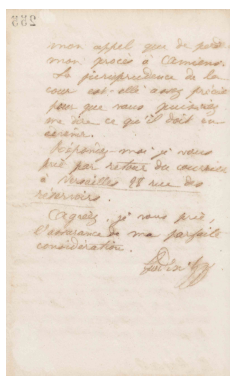 mon appel que de perdre
mon procès à Amiens.
La jurisprudence de la
cour est-elle assez précise
pour que vous puissiez
me dire ce qu'il doit en
Répondez-moi je vous
prie par retour du courrier
à Versailles 28 rue des
réservoirs.
Agréez, je vous prie,
l'assurance de ma parfaite
considération.